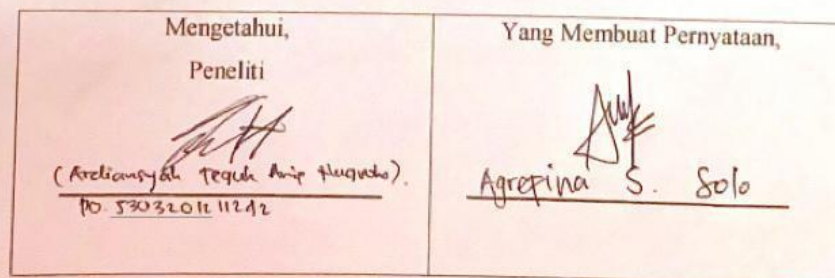 Mengetahui,
Peneliti
(Ardiansyah Teguh Arip Nugroho).
PO. 5303201211242
Yang Membuat Pernyataan,
Agrepina S. Solo